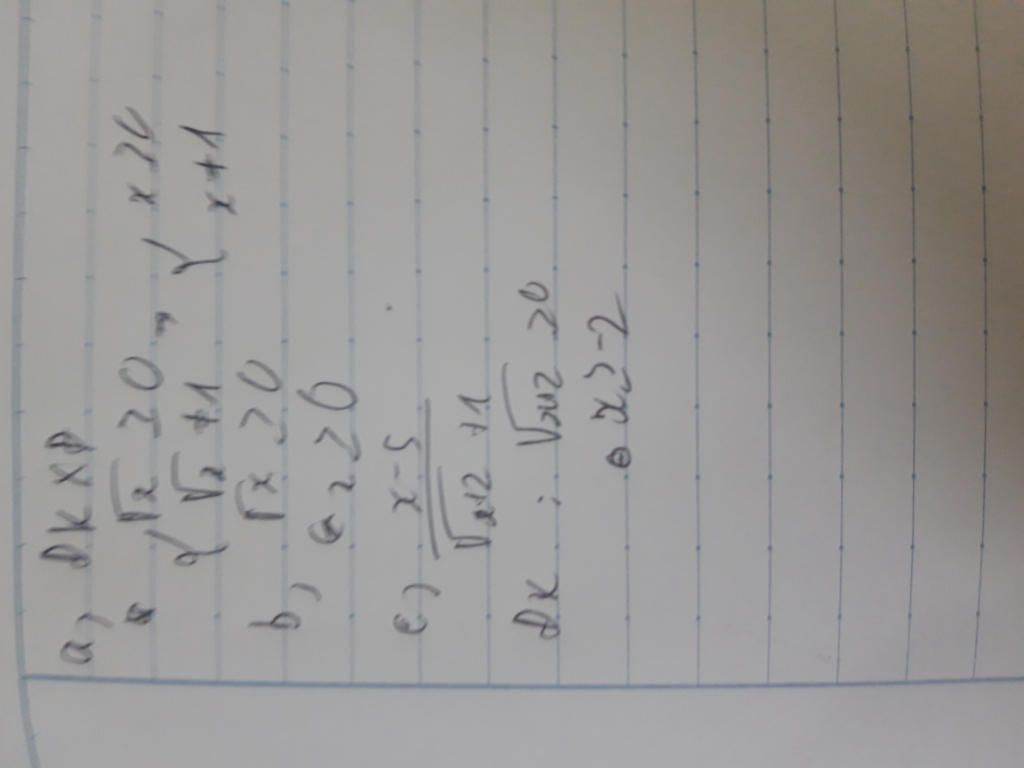 a, ĐKXĐ
{ √x ≥ 0 → { x ≥ 0
{ √x ≠ 1 { x ≠ 1
b, √x ≥ 0
x ≥ 0
c, x-5
√x+2 +1
ĐK : √x+2 ≥ 0
⇔ x ≥ -2